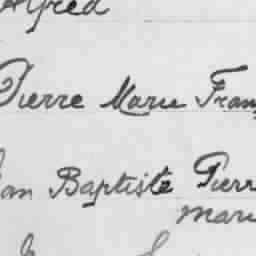 Alfred
Pierre Marie Fran
an Baptiste Pierr
Mari